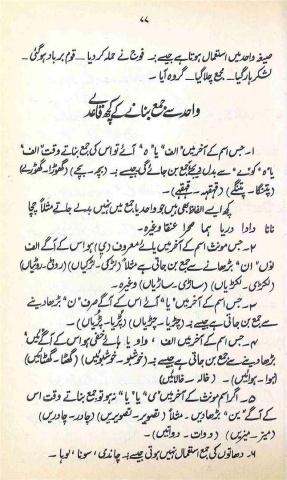 ۷۷
صیغہ واحد میں استعمال ہوتا ہے جیسے :۔ فوج نے حملہ کر دیا ۔ قوم برباد ہو گئی ۔
لشکر ہار گیا ۔ مجمع چلا گیا ۔ گروہ آیا ۔
واحد سے جمع بنانے کے کچھ قاعدے
۱۔ جس اسم کے آخر میں "الف" یا "ہ" آئے تو اس کی جمع بناتے وقت "الف"
یا "ہ" کو "ے" سے بدل دینے جمع بن جائے گی جیسے :۔ (بچہ ۔ بچے) (گھوڑا ۔ گھوڑے)
(پتنگا ۔ پتنگے) (قہقہہ ۔ قہقہے)۔
کچھ ایسے الفاظ بھی ہیں جو واحد یا جمع میں نہیں بدلے جاتے مثلاً چچا
نانا دادا دریا ہما صحرا عنقا وغیرہ ۔
۲۔ جس مونث اسم کے آخر میں یائے معروف (ی) ہو اس کے آگے الف
نون "ان" بڑھانے سے جمع بن جاتی ہے مثلاً (لڑکی ۔ لڑکیاں) (روٹی ۔ روٹیاں)
(لکڑی ۔ لکڑیاں) (ساڑی ۔ ساڑیاں) وغیرہ ۔
۳۔ جس اسم کے آخر میں "یا" آئے اس کے آگے صرف "ن" بڑھا دینے
سے جمع بن جاتی ہے جیسے :۔ (چڑیا ۔ چڑیاں) (پڑیا ۔ پڑیاں)۔
۴۔ جس مونث اسم کے آخر میں الف ، واو یا ہائے مختفی ہو اس کے آگے "ئیں"
بڑھا دینے سے جمع بن جاتی ہے جیسے :۔ (خوشبو ۔ خوشبوئیں) (گھٹا ۔ گھٹائیں)
(ہوا ۔ ہوائیں) ۔ (خالہ ۔ خالائیں)
۵۔ اگر اسم مونث کے آخر میں "ی" یا "یا" نہ ہو تو جمع بناتے وقت اس
کے آگے "ین" بڑھا دیں ۔ مثلاً (تصویر ۔ تصویریں) (چادر ۔ چادریں)
(میز ۔ میزیں) (دوات ۔ دواتیں) ۔
۶۔ دھاتوں کی جمع استعمال نہیں ہوتی جیسے :۔ چاندی ، سونا ، لوہا ۔